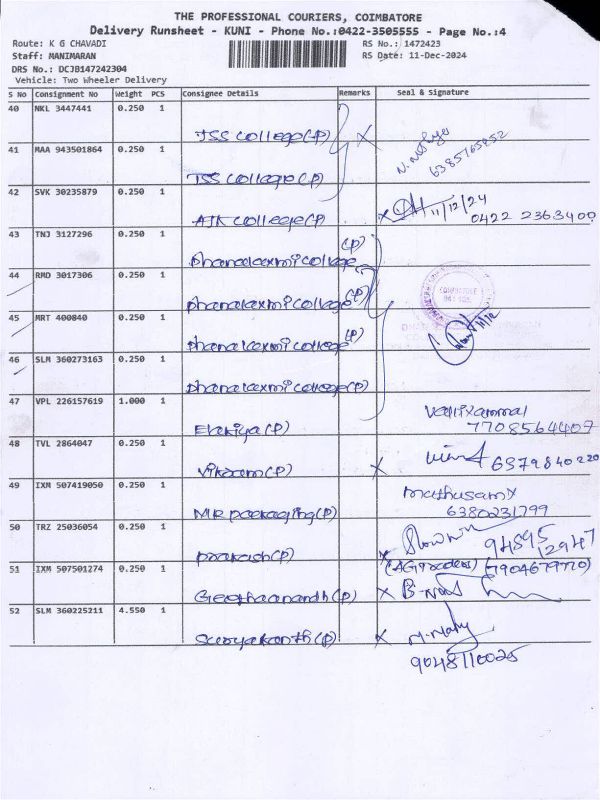 THE PROFESSIONAL COURIERS, COIMBATORE
Delivery Runsheet - KUNI - Phone No.:0422-3505555 - Page No.:4
Route: K G CHAVADI RS No.: 1472423
Staff: MANIMARAN RS Date: 11-Dec-2024
DRS No.: DCJB147242304
Vehicle: Two Wheeler Delivery
S No Consignment No Weight PCS Consignee Details Remarks Seal & Signature
40 NKL 3447441 0.250 1 JSS College (P)
6385765852
41 MAA 943501864 0.250 1 JSS College (P)
42 SVK 30235879 0.250 1 AJK College (P) 11/12/24
0422 2363400
43 TNJ 3127296 0.250 1 Dhanalaxmi College (P)
44 RMD 3017306 0.250 1 Dhanalaxmi College (P)
COIMBATORE
45 MRT 400840 0.250 1 Dhanalaxmi College (P)
46 SLM 360273163 0.250 1 Dhanalaxmi College (P)
47 VPL 226157619 1.000 1 Elakiya (P) Vallixammal
7708564407
48 TVL 2864047 0.250 1 Vikram (P) 6379840220
49 IXM 507419050 0.250 1 MR packaging (P) mathusamy
6380231799
50 TRZ 25036054 0.250 1 prakash (P) 94895 12947
51 IXM 507501274 0.250 1 Geethaanandh (P) (AG Traders) (7904679770)
52 SLM 360225211 4.550 1 Suryakanth (P) M. Mary
9048110025